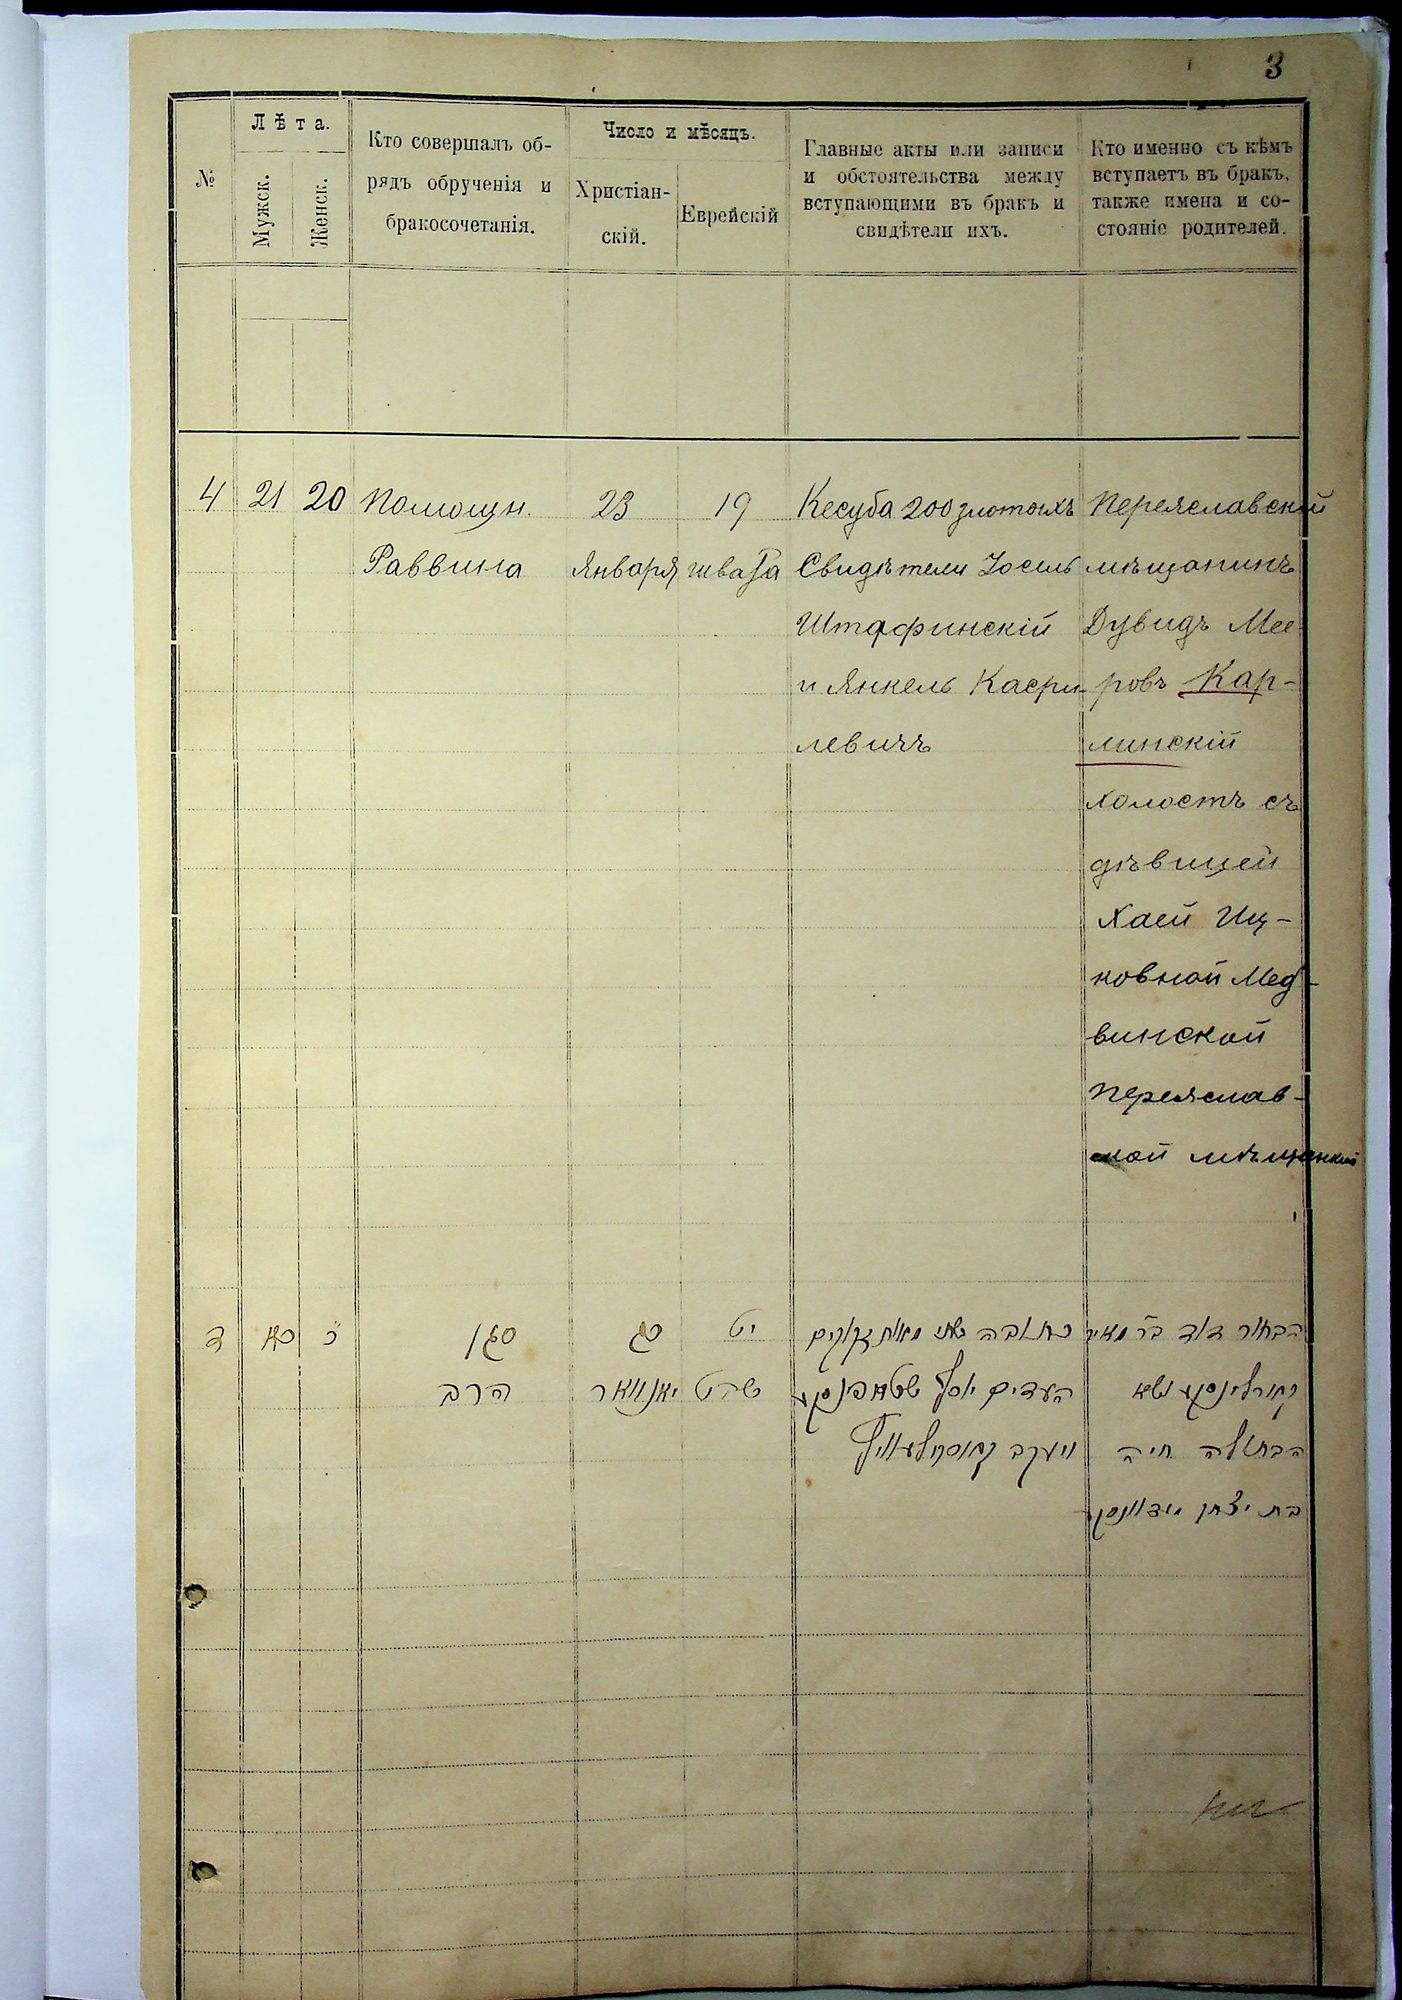 3
№
Лѣта.
Мужск.
Женск.
Кто совершалъ об-
рядъ обрученія и
бракосочетанія.
Число и мѣсяцъ.
Христіан-
скій.
Еврейскій
Главные акты или записи
и обстоятельства между
вступающими въ бракъ и
свидѣтели ихъ.
Кто именно съ кѣмъ
вступаетъ въ бракъ,
также имена и со-
стояніе родителей.
4
21
20
Помощн.
Раввина
23
Января
19
швата
Кесуба 200 злотыхъ
Свидѣтели Іосиль
Штафинскій
и Янкель Касри-
левичъ
Переяславскій
мѣщанинъ
Дувидъ Мее-
ровъ Кар-
линскій
холостъ съ
дѣвицей
Хаей Иц-
ковной Мед-
винской
Переяслав-
ской мѣщанкой
ד
כא
כ
סגן
הרב
כג
יאנוואר
יט
שבט
כתובה שתי מאות זקוקים
העדים יוסף שטאפינסקי
ויעקב
הבחור דוד בר מאיר
קארלינסקי נשא
הבתולה חיה
בת יצחק מידווינסקי